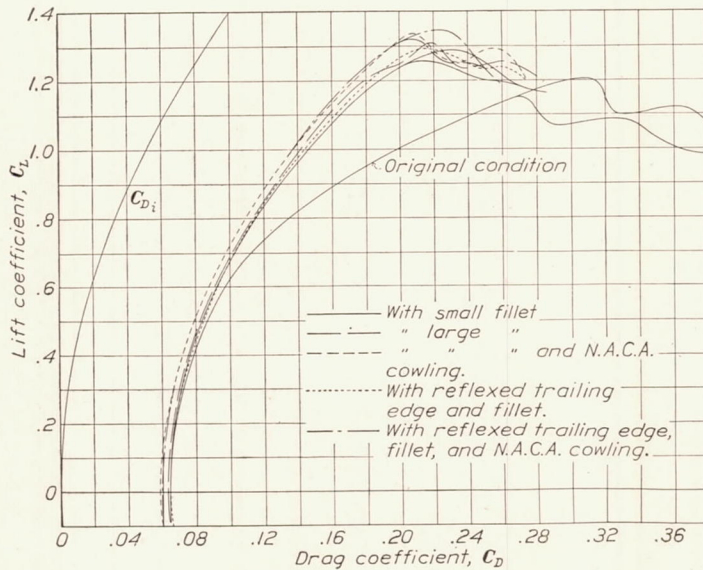 1.4
1.2
1.0
.8
.6
.4
.2
0
Lift coefficient, C_L
C_Di
Original condition
With small fillet
" large "
" " " and N.A.C.A.
cowling.
With reflexed trailing
edge and fillet.
With reflexed trailing edge,
fillet, and N.A.C.A. cowling.
0 .04 .08 .12 .16 .20 .24 .28 .32 .36
Drag coefficient, C_D